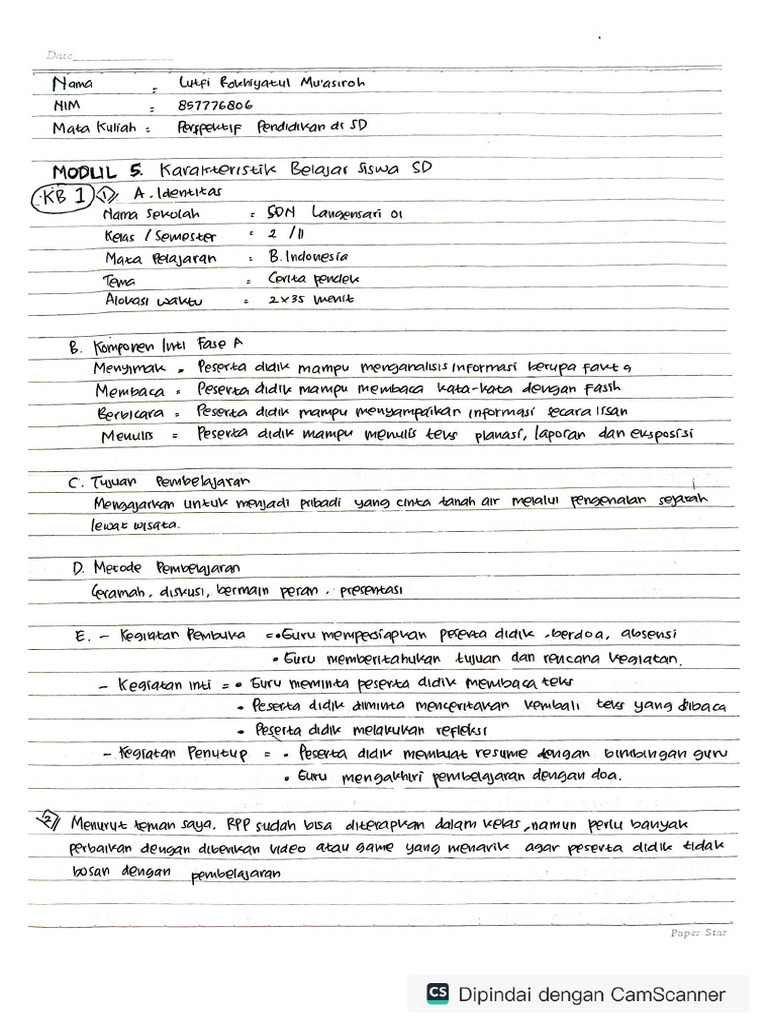 Date
Nama : Lutfi Rokhiyatul Mu'asiroh
NIM : 857776806
Mata Kuliah : Perspektif Pendidikan di SD
MODUL 5. Karakteristik Belajar Siswa SD
KB 1 1 A. Identitas
Nama Sekolah : SDN Langensari 01
Kelas / Semester : 2 / II
Mata Pelajaran : B. Indonesia
Tema : Cerita pendek
Alokasi waktu : 2x35 menit
B. Komponen Inti Fase A
Menyimak = Peserta didik mampu menganalisis informasi berupa fakta
Membaca = Peserta didik mampu membaca kata-kata dengan fasih
Berbicara = Peserta didik mampu menyampaikan informasi secara lisan
Menulis = Peserta didik mampu menulis teks planasi, laporan dan eksposisi
C. Tujuan Pembelajaran
Mengajarkan untuk menjadi pribadi yang cinta tanah air melalui pengenalan sejarah
lewat wisata.
D. Metode Pembelajaran
Ceramah, diskusi, bermain peran, presentasi
E. - Kegiatan Pembuka = • Guru mempersiapkan peserta didik, berdoa, absensi
• Guru memberitahukan tujuan dan rencana kegiatan.
- Kegiatan inti = • Guru meminta peserta didik membaca teks
• Peserta didik diminta menceritakan kembali teks yang dibaca
• Peserta didik melakukan refleksi
- Kegiatan Penutup = • Peserta didik membuat resume dengan bimbingan guru
• Guru mengakhiri pembelajaran dengan doa.
2 Menurut teman saya, RPP sudah bisa diterapkan dalam kelas, namun perlu banyak
perbaikan dengan diberikan video atau game yang menarik agar peserta didik tidak
bosan dengan pembelajaran
Paper Star
CS Dipindai dengan CamScanner